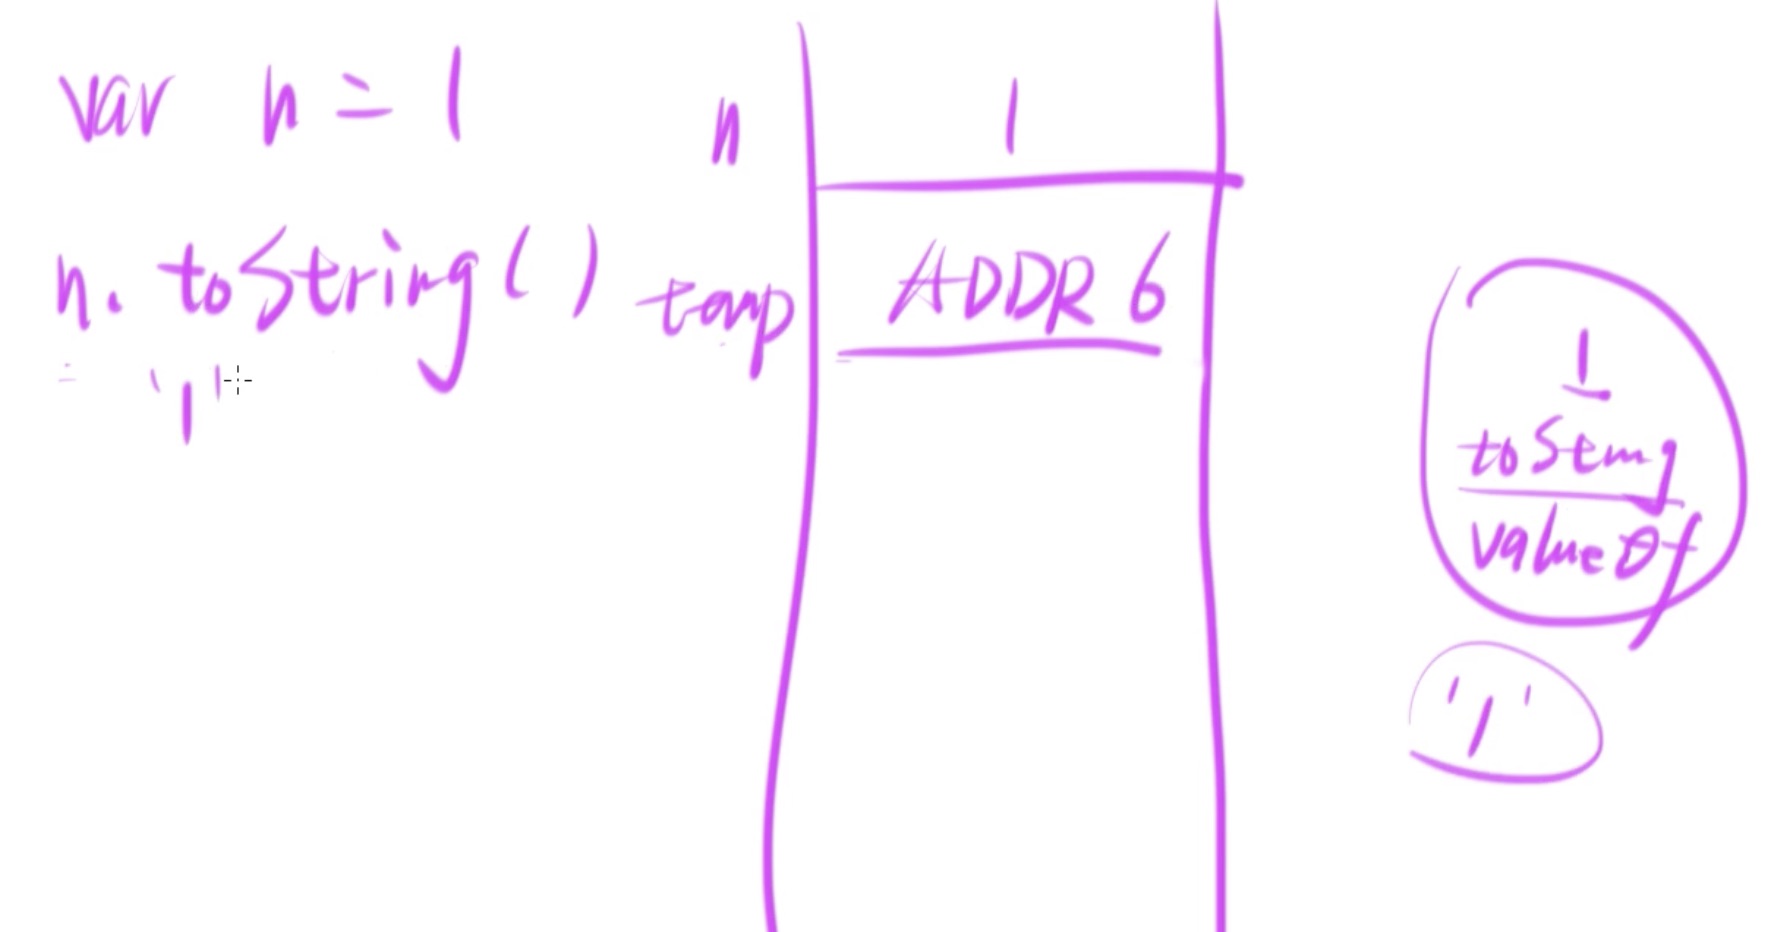 var n = 1
n 1
n. toString()
temp ADDR 6
= '1'
1
toString
valueOf
'1'